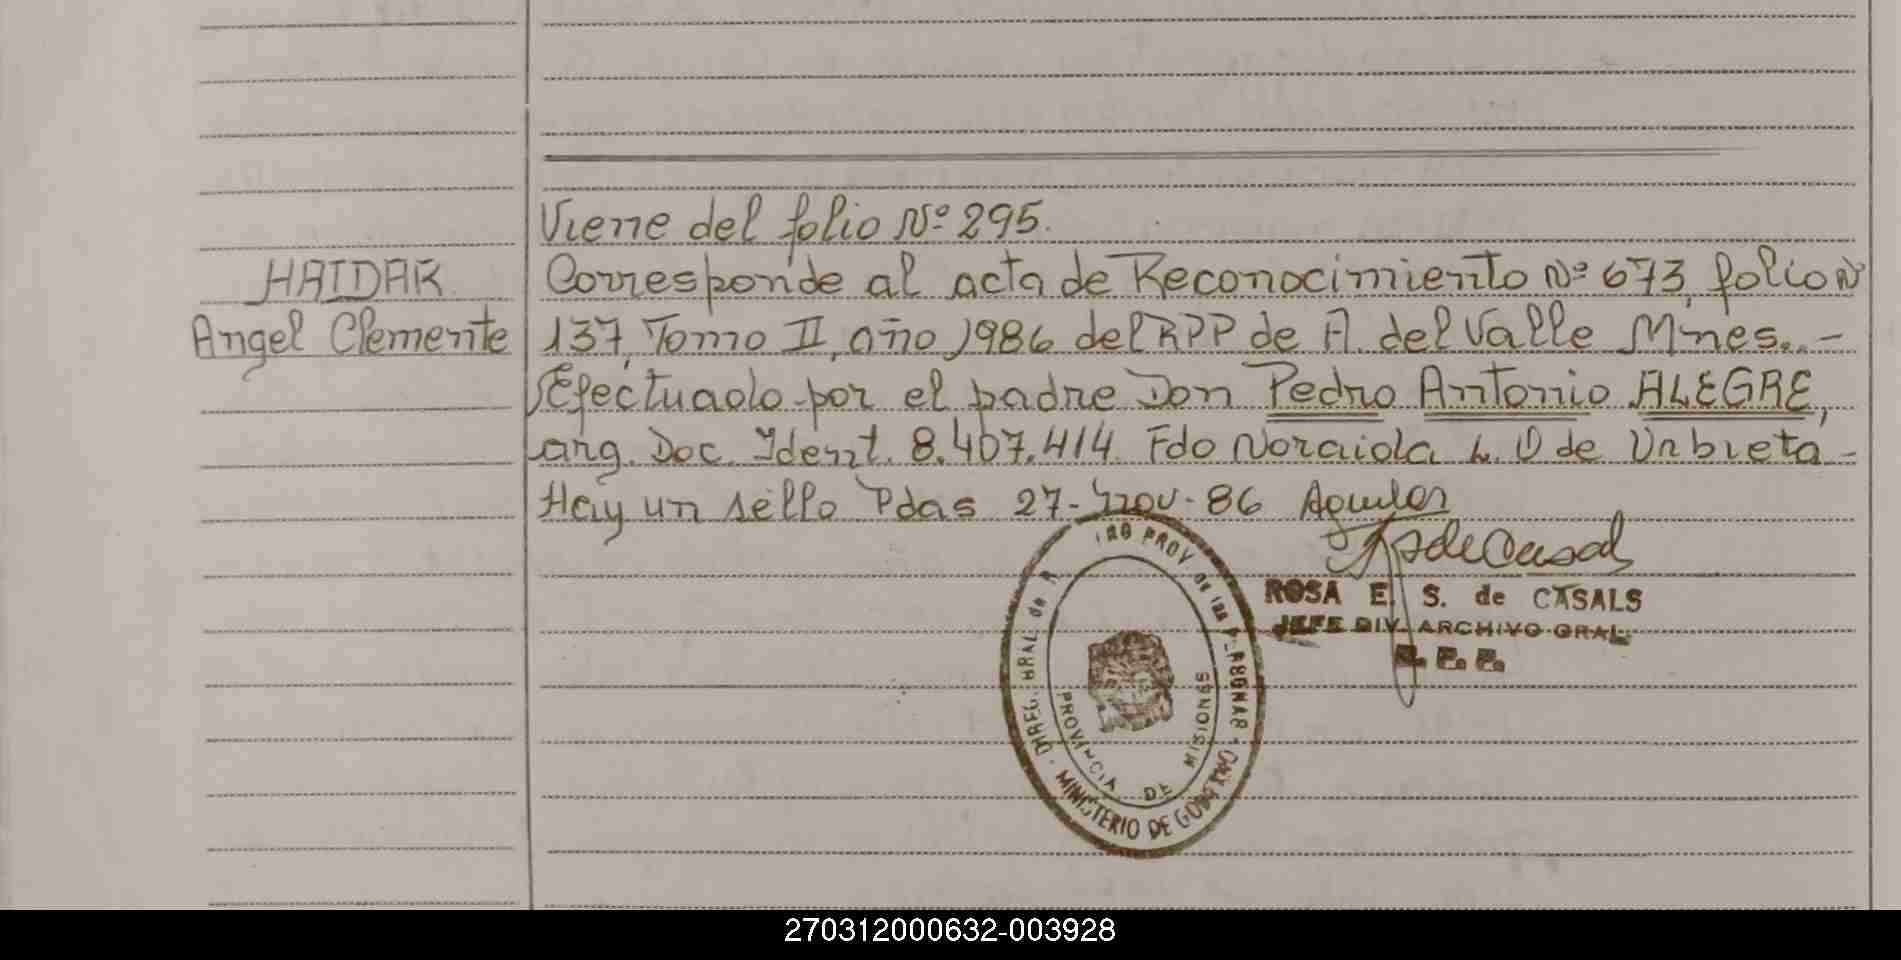 Viene del folio Nº 295.
HAIDAR
Corresponde al acta de Reconocimiento Nº 673, folio Nº
Angel Clemente
137, Tomo II, año 1986 del RPP de A. del Valle Mnes..-
Efectuado por el padre Don Pedro Antonio ALEGRE,
arg. Doc. Ident. 8.407.414. Fdo Noraida L. O de Urbieta-
Hay un sello Pdas 27-nov-86
ROSA E. S. de CASALS
JEFE DIV. ARCHIVO GRAL.
R. P. P.
DIREC. GRAL de PROV de las PERSONAS
MINISTERIO DE GOBIERNO
PROVINCIA DE MISIONES
270312000632-003928